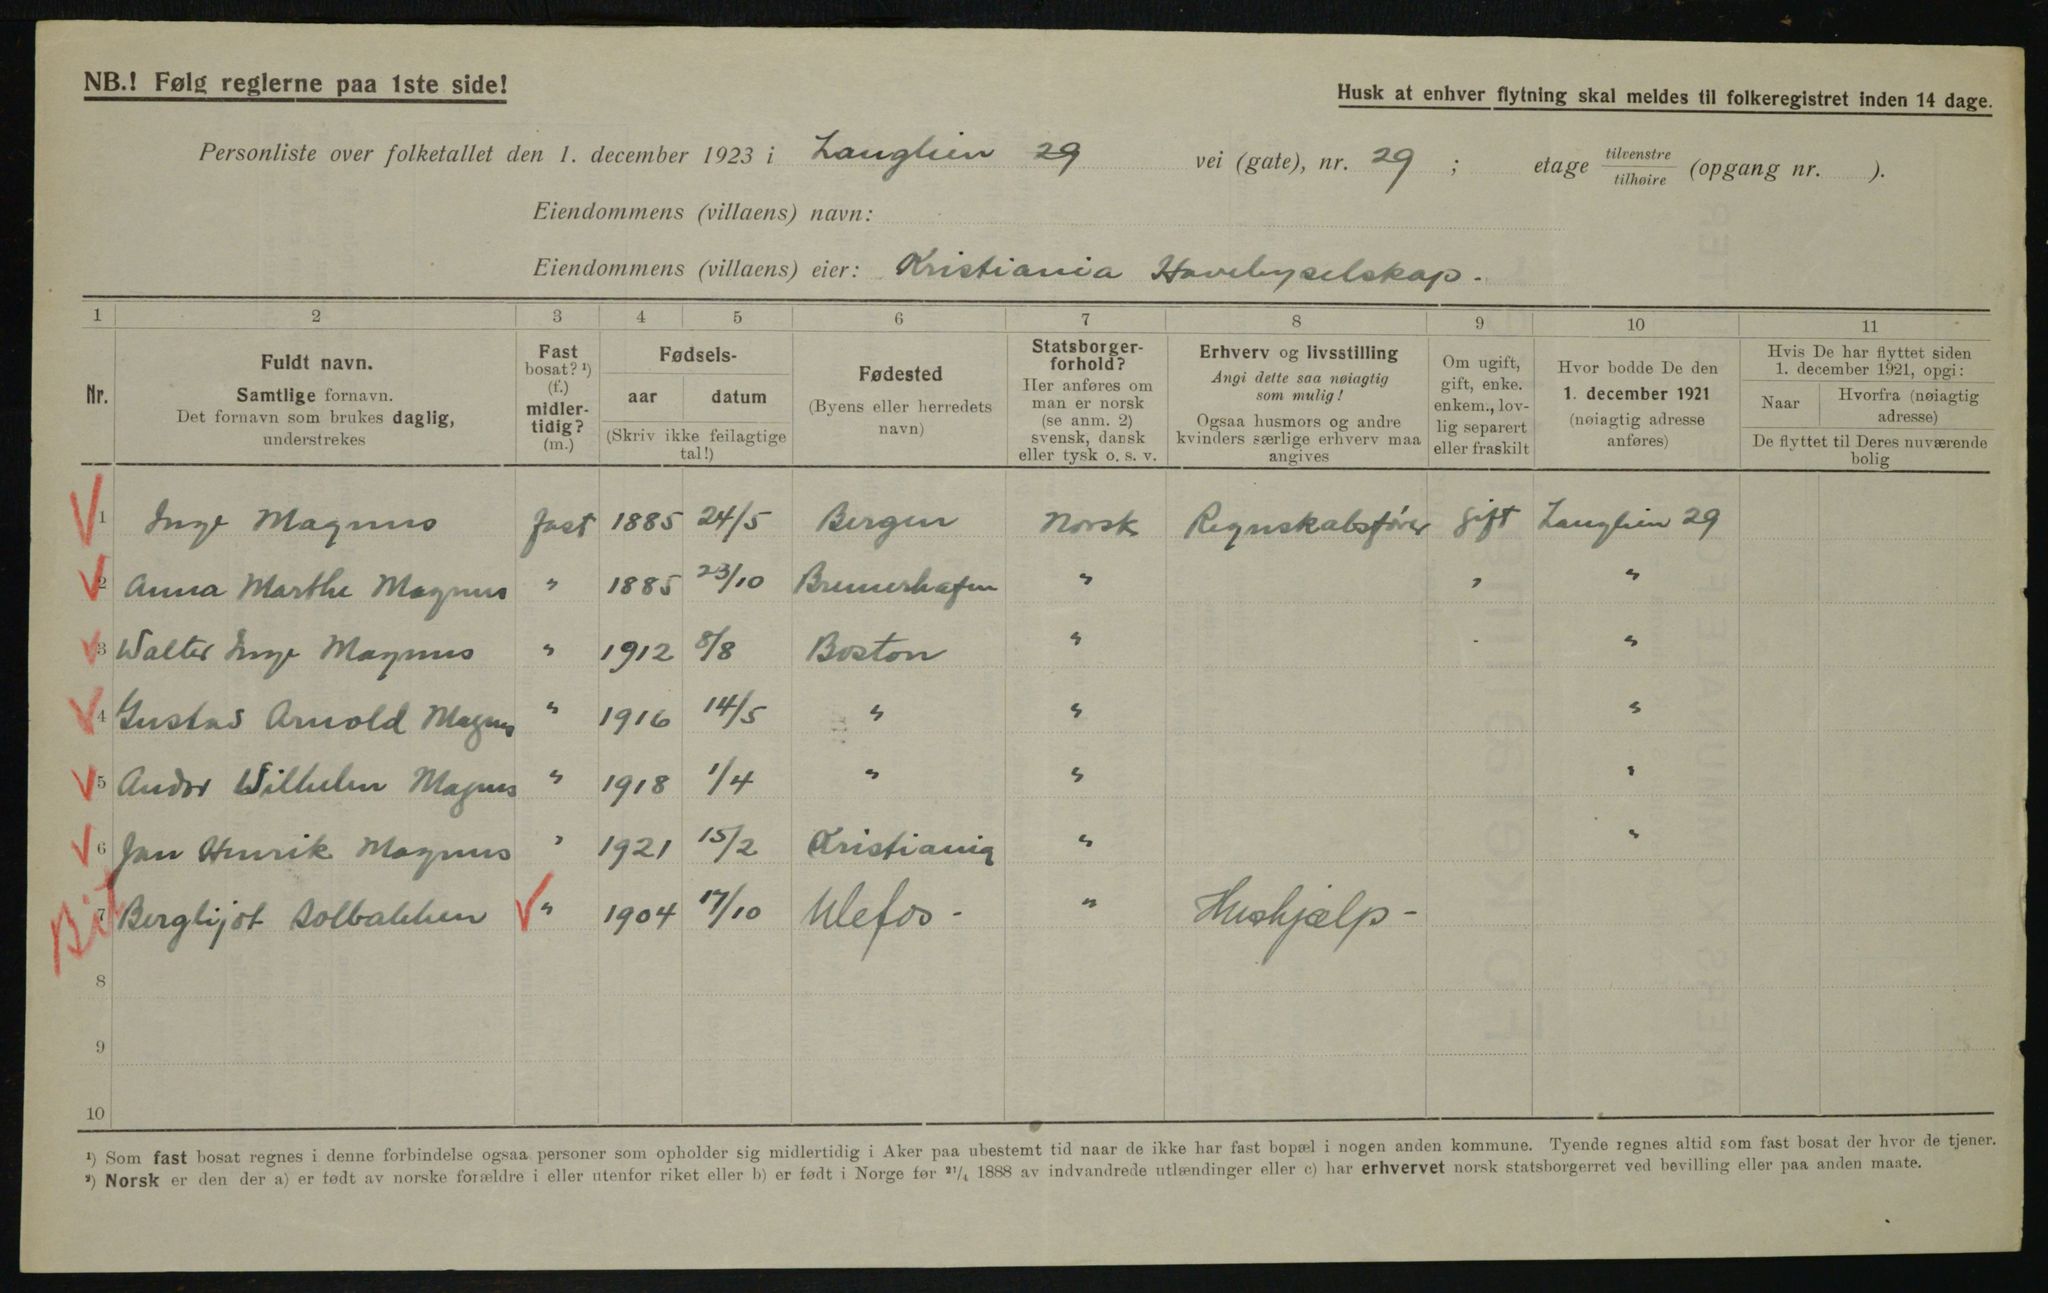 NB.! Følg reglerne paa 1ste side!
Husk at enhver flytning skal meldes til folkeregistret inden 14 dage.
Personliste over folketallet den 1. december 1923 i Langlien 29 vei (gate), nr. 29 ; etage tilvenstre/tilhøire (opgang nr. ).
Eiendommens (villaens) navn:
Eiendommens (villaens) eier: Kristiania Havebyselskap.
1 2 3 4 5 6 7 8 9 10 11
Nr.
Fuldt navn.
Samtlige fornavn.
Det fornavn som brukes daglig,
understrekes
Fast
bosat? ¹)
(f.)
midler-
tidig?
(m.)
Fødsels-
aar datum
(Skriv ikke feilagtige
tal!)
Fødested
(Byens eller herredets
navn)
Statsborger-
forhold?
Her anføres om
man er norsk
(se anm. 2)
svensk, dansk
eller tysk o. s. v.
Erhverv og livsstilling
Angi dette saa nøiagtig
som mulig!
Ogsaa husmors og andre
kvinders særlige erhverv maa
angives
Om ugift,
gift, enke.
enkem., lov-
lig separert
eller fraskilt
Hvor bodde De den
1. december 1921
(nøiagtig adresse
anføres)
Hvis De har flyttet siden
1. december 1921, opgi:
Naar
Hvorfra (nøiagtig
adresse)
De flyttet til Deres nuværende
bolig
1 Inge Magnus fast 1885 24/5 Bergen Norsk Regnskabsfører gift Langlien 29
2 Anna Marthe Magnus " 1885 23/10 Bremerhafen " " "
3 Walter Inge Magnus " 1912 8/8 Boston " "
4 Gustav Arnold Magnus " 1916 14/5 " " "
5 Andor Wilhelm Magnus " 1918 1/4 " " "
6 Jan Henrik Magnus " 1921 15/2 Kristiania " "
7 Bergljot Solbakken " 1904 17/10 Ulefos - " Hushjælp -
8
9
10
¹) Som fast bosat regnes i denne forbindelse ogsaa personer som opholder sig midlertidig i Aker paa ubestemt tid naar de ikke har fast bopæl i nogen anden kommune. Tyende regnes altid som fast bosat der hvor de tjener.
²) Norsk er den der a) er født av norske forældre i eller utenfor riket eller b) er født i Norge før ²¹/₄ 1888 av indvandrede utlændinger eller c) har erhvervet norsk statsborgerret ved bevilling eller paa anden maate.